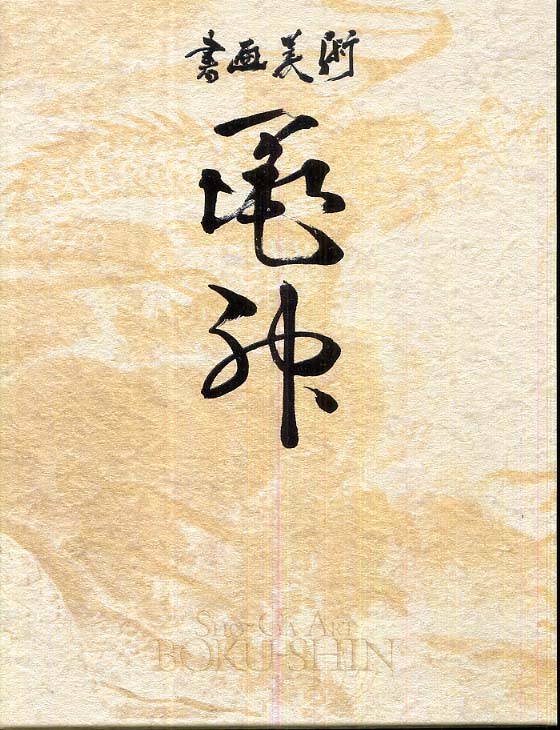 書画美術
墨神
SHO-GA ART
BOKU SHIN